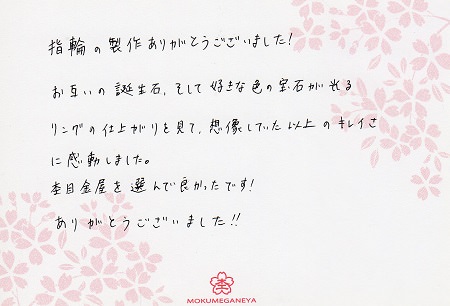 指輪の製作ありがとうございました!
お互いの誕生石、そして好きな色の宝石が光る
リングの仕上がりを見て、想像していた以上のキレイさ
に感動しました。
杢目金屋を選んで良かったです!
ありがとうございました!!
杢
MOKUMEGANEYA